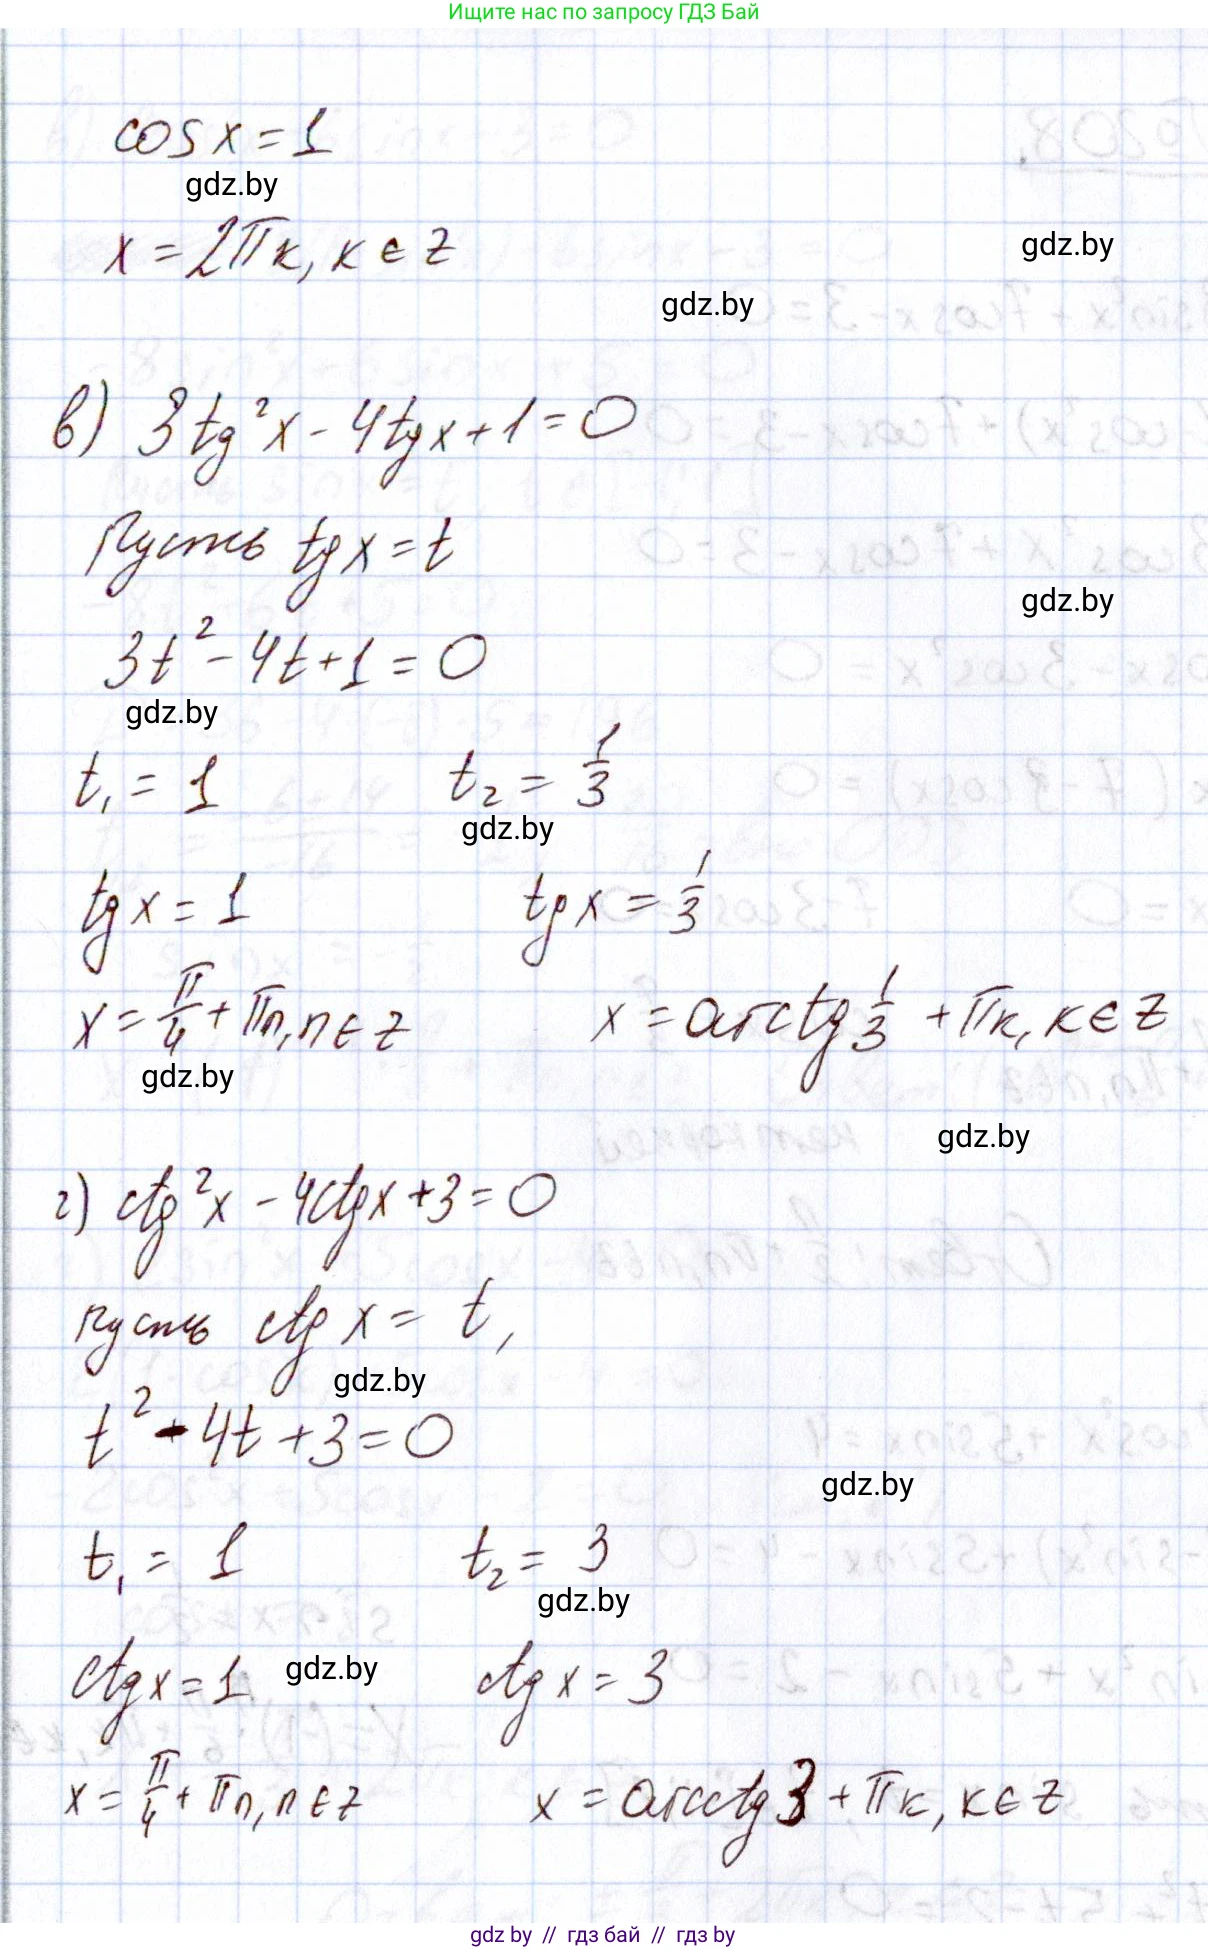 Ищите нас по запросу ГДЗ Бай
cos x = 1
gdz.by
x = 2πк, к ∈ Z
gdz.by
gdz.by
в) 3tg²x - 4tgx + 1 = 0
Пусть tgx = t
gdz.by
3t² - 4t + 1 = 0
gdz.by
t₁ = 1 t₂ = 1/3
gdz.by
tgx = 1 tgx = 1/3
x = π/4 + πn, n ∈ Z x = arctg 1/3 + πк, к ∈ Z
gdz.by
gdz.by
г) ctg²x - 4ctgx + 3 = 0
Пусть ctg x = t,
gdz.by
t² - 4t + 3 = 0
gdz.by
t₁ = 1 t₂ = 3
gdz.by
ctgx = 1 gdz.by ctgx = 3
x = π/4 + πn, n ∈ Z x = arcctg3 + πк, к ∈ Z
gdz.by // гдз бай // гдз by